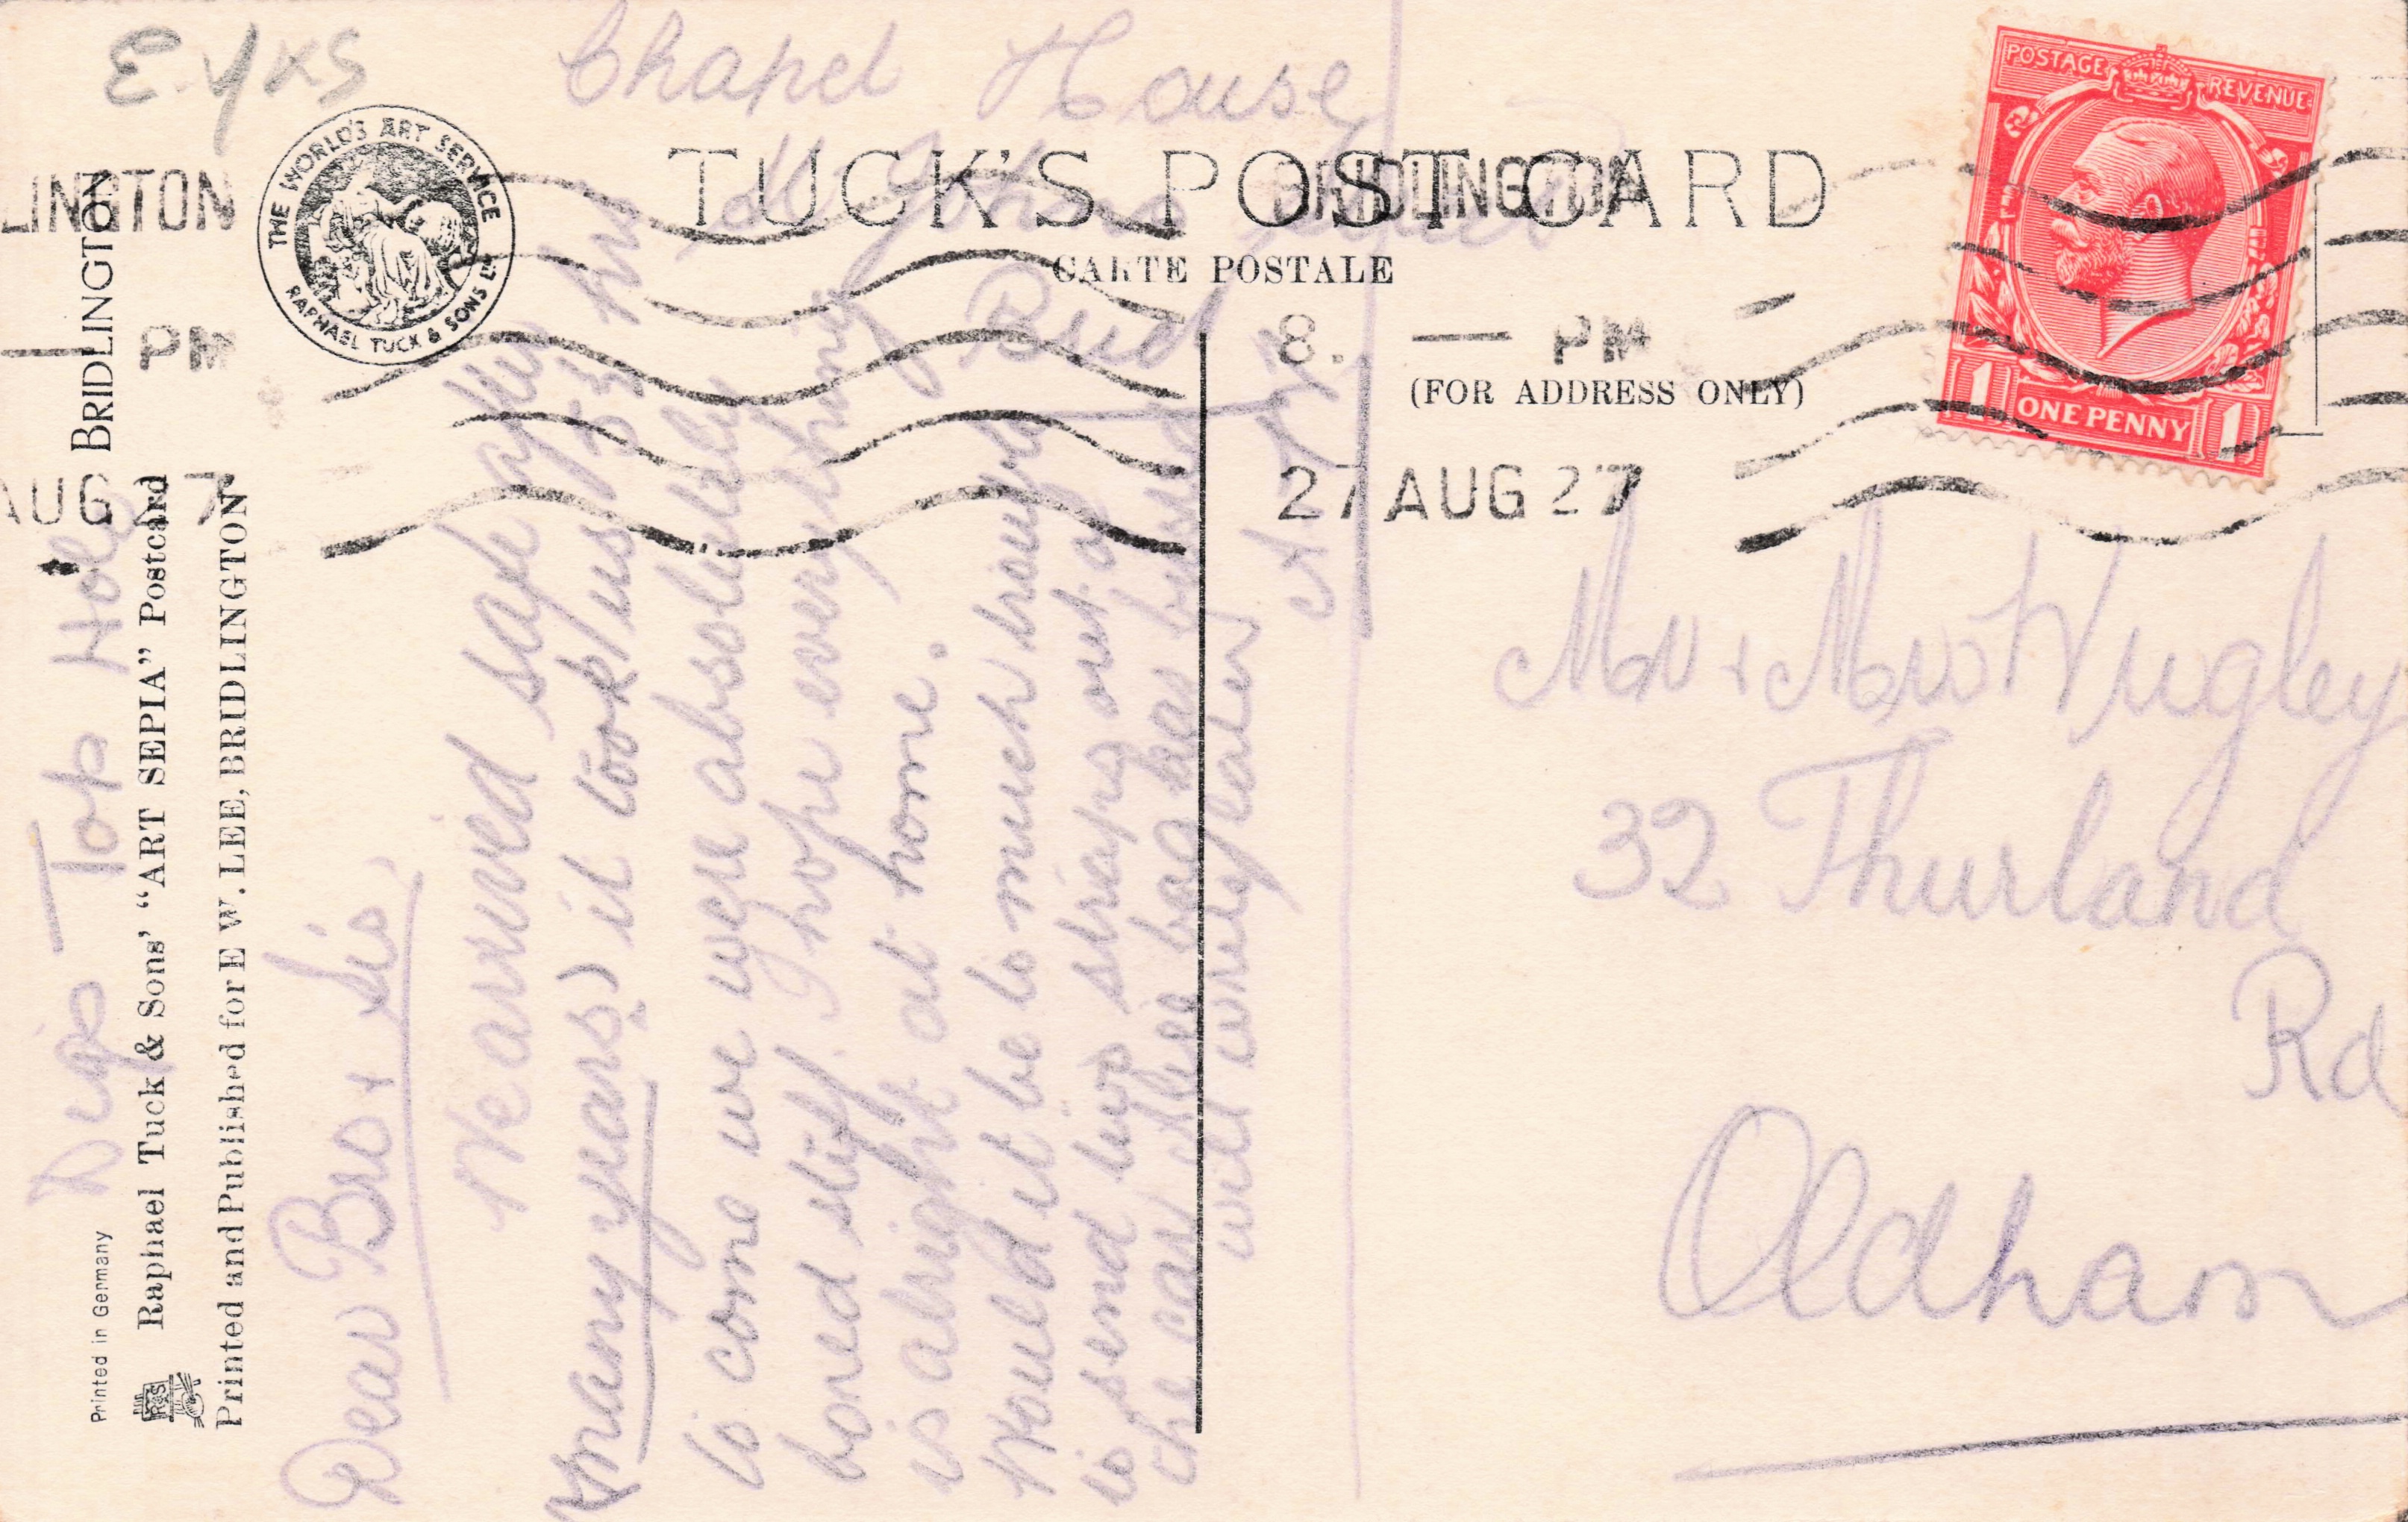 E. Yks
Chapel House
St Johns
Brid
TUCK'S POST CARD
CARTE POSTALE
(FOR ADDRESS ONLY)
THE WORLD'S ART SERVICE
RAPHAEL TUCK & SONS LTD
LINGTON
PM
AUG 27
BRIDLINGTON
8. — PM
27 AUG 27
POSTAGE REVENUE
1 ONE PENNY 1
BRIDLINGTON
Printed in Germany
Raphael Tuck & Sons' "ART SEPIA" Postcard
Printed and Published for E W. LEE, BRIDLINGTON
Digs Top Hole
Dear Bro + Sis,
We arrived safe after
many years) it took us 5¾ hrs
to come we were absolutely
boned stiff. I hope everything
is alright at home.
Would it be to much trouble
to send two straps out of
the car Alice bag has busted
will write later
Mr + Mrs Wrigley
32 Thurland
Rd
Oldham